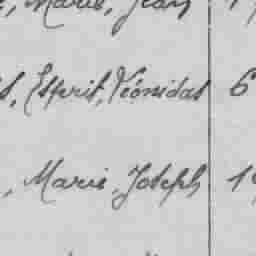 , Marie, Jean 1
s, Esprit, Léonidas 6
, Marie, Joseph 19